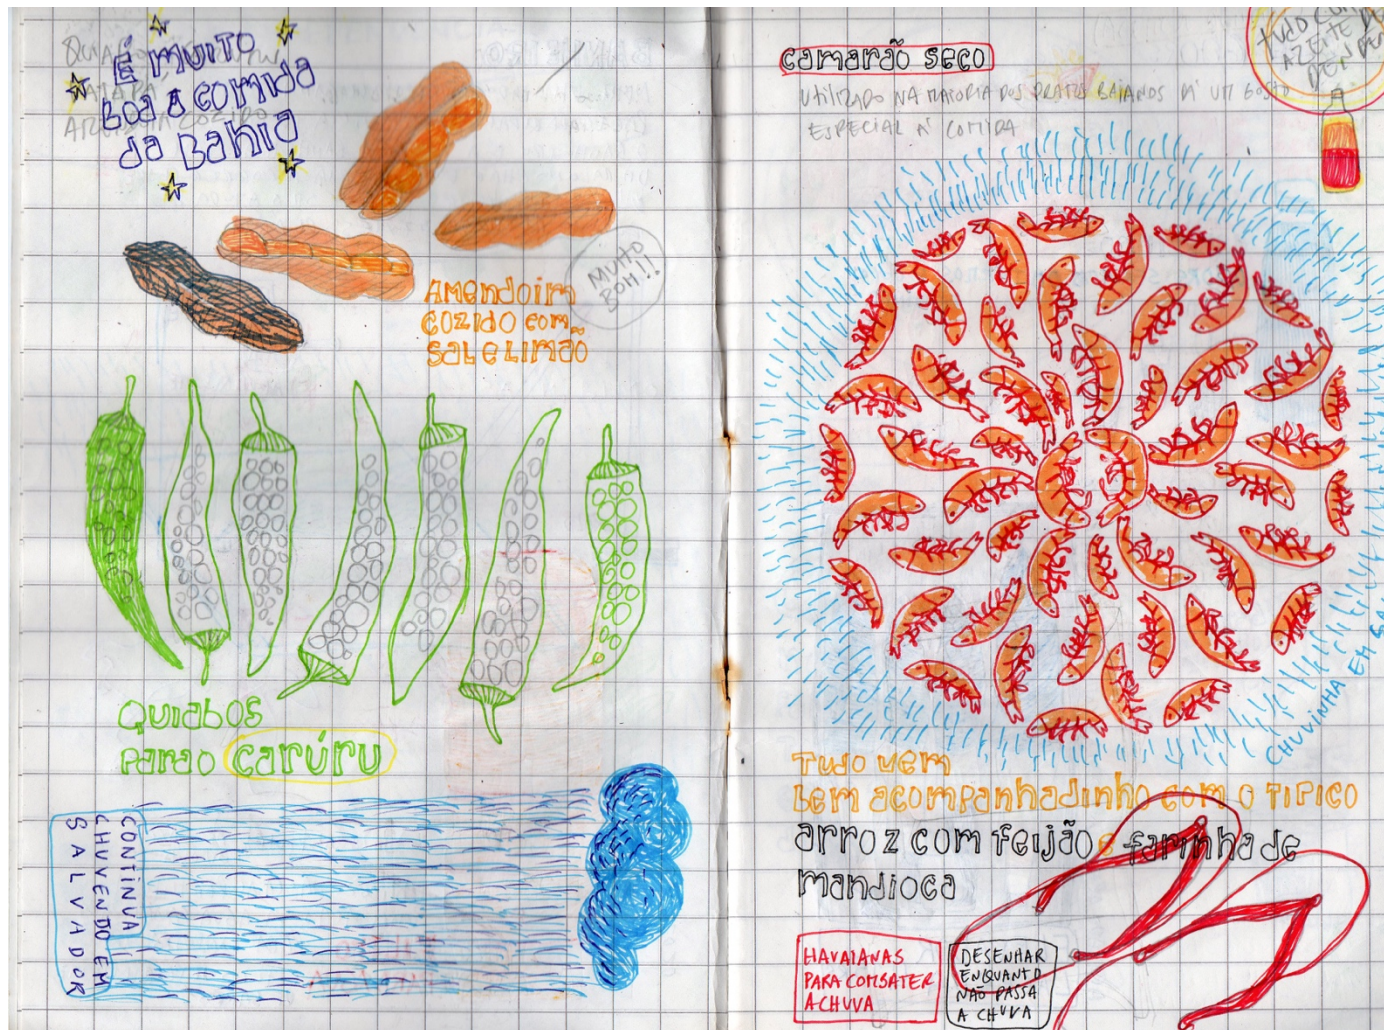 É MUITO
BOA A COMIDA
DA BAHIA
QUIABO
COZIDO
AMENDOIM
COZIDO COM
SAL E LIMÃO
MUITO
BOM!!
QUIABOS
PARA O CARÚRU
CONTINUA
CHUVENDO EM
SALVADOR
CAMARÃO SECO
UTILIZADO NA MAIORIA DOS PRATOS BAIANOS DÁ UM GOSTO
ESPECIAL À COMIDA
TUDO COM
AZEITE
DENDÊ
CHUVINHA EM
TUDO VEM
BEM ACOMPANHADINHO COM O TIPICO
ARROZ COM FEIJÃO E FARINHA DE
MANDIOCA
HAVAIANAS
PARA COMBATER
A CHUVA
DESENHAR
ENQUANTO
NÃO PASSA
A CHUVA